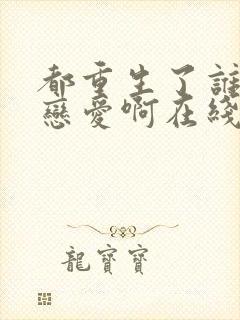 都重生了誰
戀愛啊在綫
龍寶寶